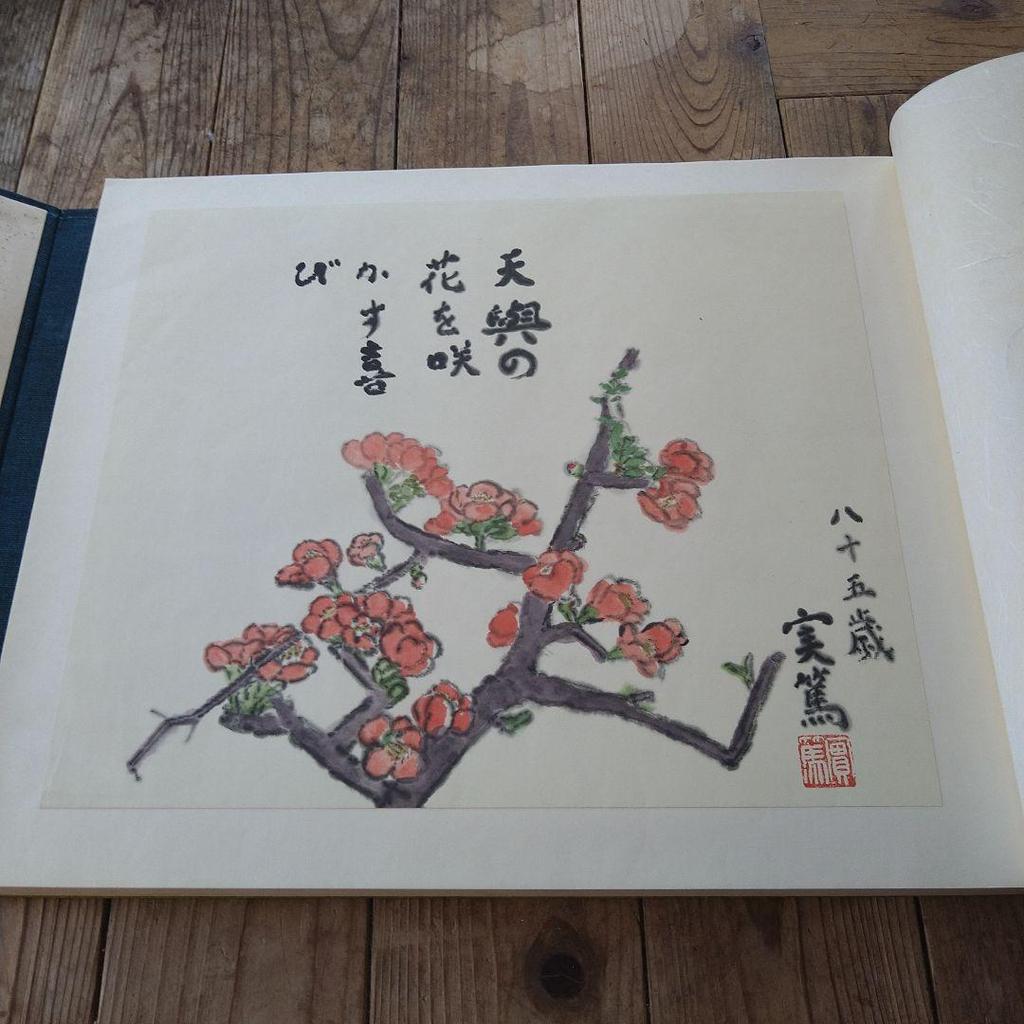 天與の
花を咲
かす喜
び
八十五歳
実篤
實篤